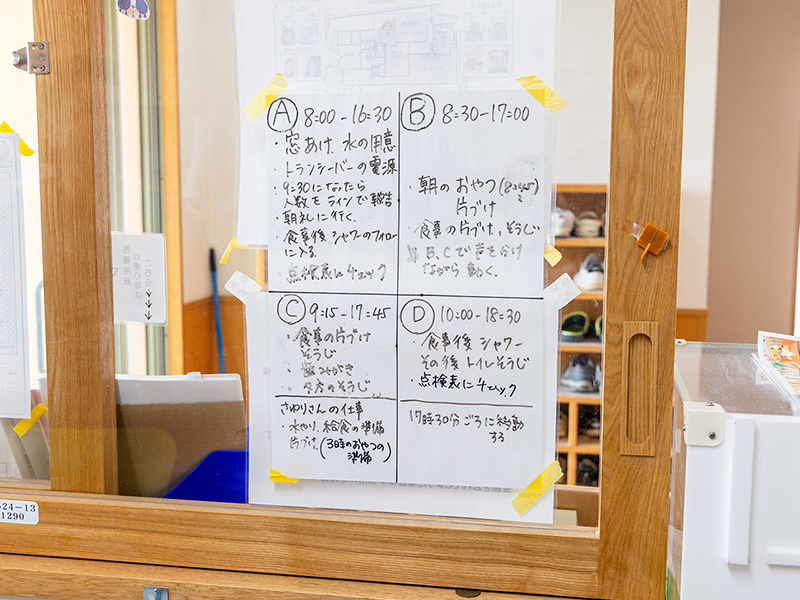 Ⓐ 8:00-16:30
・窓あけ、水の用意
・トランシーバーの電源
・9:30になったら
人数をラインで報告
・朝礼に行く。
・食事後シャワーのフォロー
に入る。
・点検表にチェック
Ⓑ 8:30-17:00
・朝のおやつ(8:45)
片づけ
・食事の片づけ、そうじ
B、Cで声をかけ
ながら動く。
Ⓒ 9:15-17:45
・食事の片づけ
そうじ
みがき
・夕方のそうじ
さゆりさんの仕事
・水やり、給食の準備
片づけ、(3時のおやつの
準備)
Ⓓ 10:00-18:30
・食事後シャワー
その後トイレそうじ
・点検表にチェック
17時30分ごろに移動
する
24-13
1290